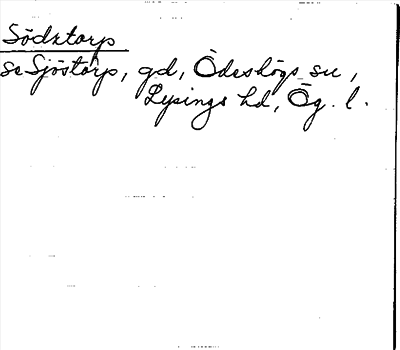 Södra torp
se Sjöstorp, gd, Ödeshögs sn,
Lysings hd, Ög. l.